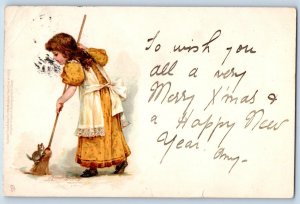 To wish you
all a very
Merry X'mas &
a Happy New
Year. Amy.